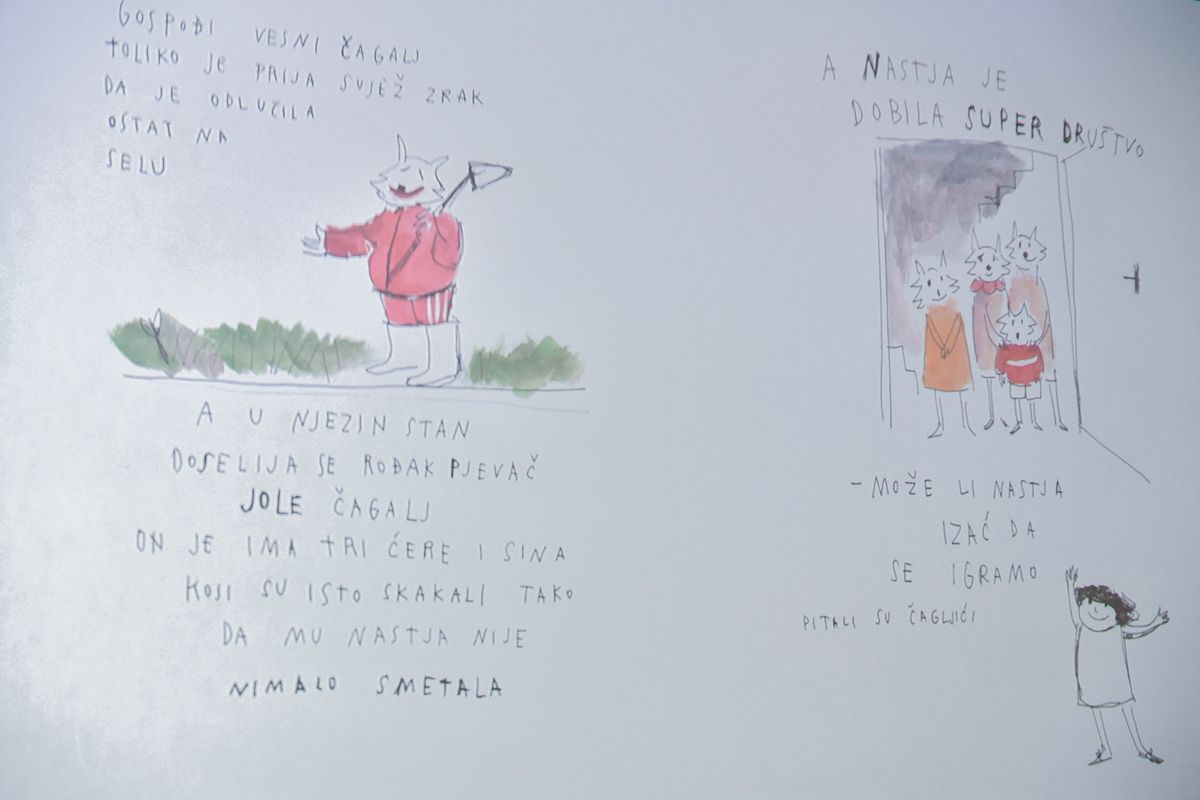 GOSPOĐI VESNI ČAGALJ
TOLIKO JE PRIJA SVJEŽ ZRAK
DA JE ODLUČILA
OSTAT NA
SELU
A U NJEZIN STAN
DOSELIJA SE ROĐAK PJEVAČ
JOLE ČAGALJ
ON JE IMA TRI ĆERE I SINA
KOJI SU ISTO SKAKALI TAKO
DA MU NASTJA NIJE
NIMALO SMETALA
A NASTJA JE
DOBILA SUPER DRUŠTVO
- MOŽE LI NASTJA
IZAĆ DA
SE IGRAMO
PITALI SU ČAGLJIĆI